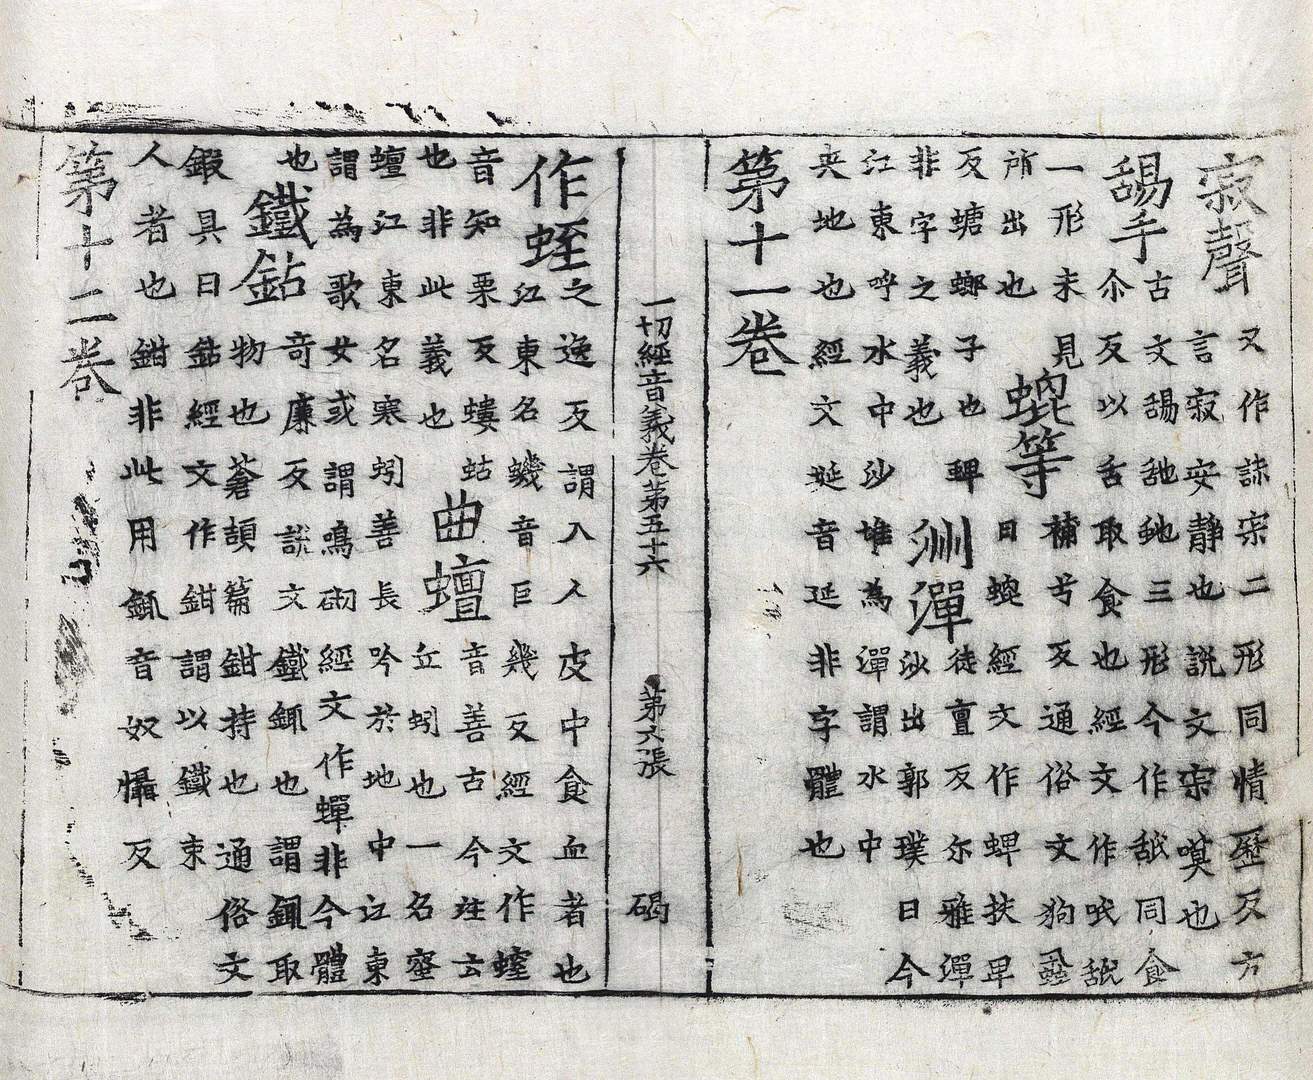 寂聲
又作誄宗二形同情歷反方
言寂安靜也說文宗嘆也
舓手
古文舓舐䑛三形今作舐同食
尒反以舌取食也經文作㖂舐
一形未見
所出也
蜫等
補兮反通俗文狗蝨
曰螕經文作蜱扶卑
反螗螂子也蜱
非字之義也
洲潬
徒亶反尔雅潬
沙出郭璞曰今
江東呼水中沙堆為潬謂水中
央地也經文埏音延非字體也
第十一卷
一切經音義卷第五十六 第六張 碣
作蛭
之逸反謂入人皮中食血者也
江東名蟣音巨幾反經文作螲
音知栗反螻蛄
也非此義也
曲蟺
音善古今注云
丘蚓也一名蜜
蟺江東名寒蚓善長吟於地中江東
謂為歌女或謂鳴砌經文作蟬非今體
也
鐵鉆
奇廉反說文鐵銸也謂銸取
物也蒼頡篇鉗持也通俗文
鍛具曰鉆經文作鉗謂以鐵束
人者也鉗非此用銸音奴懾反
第十二卷